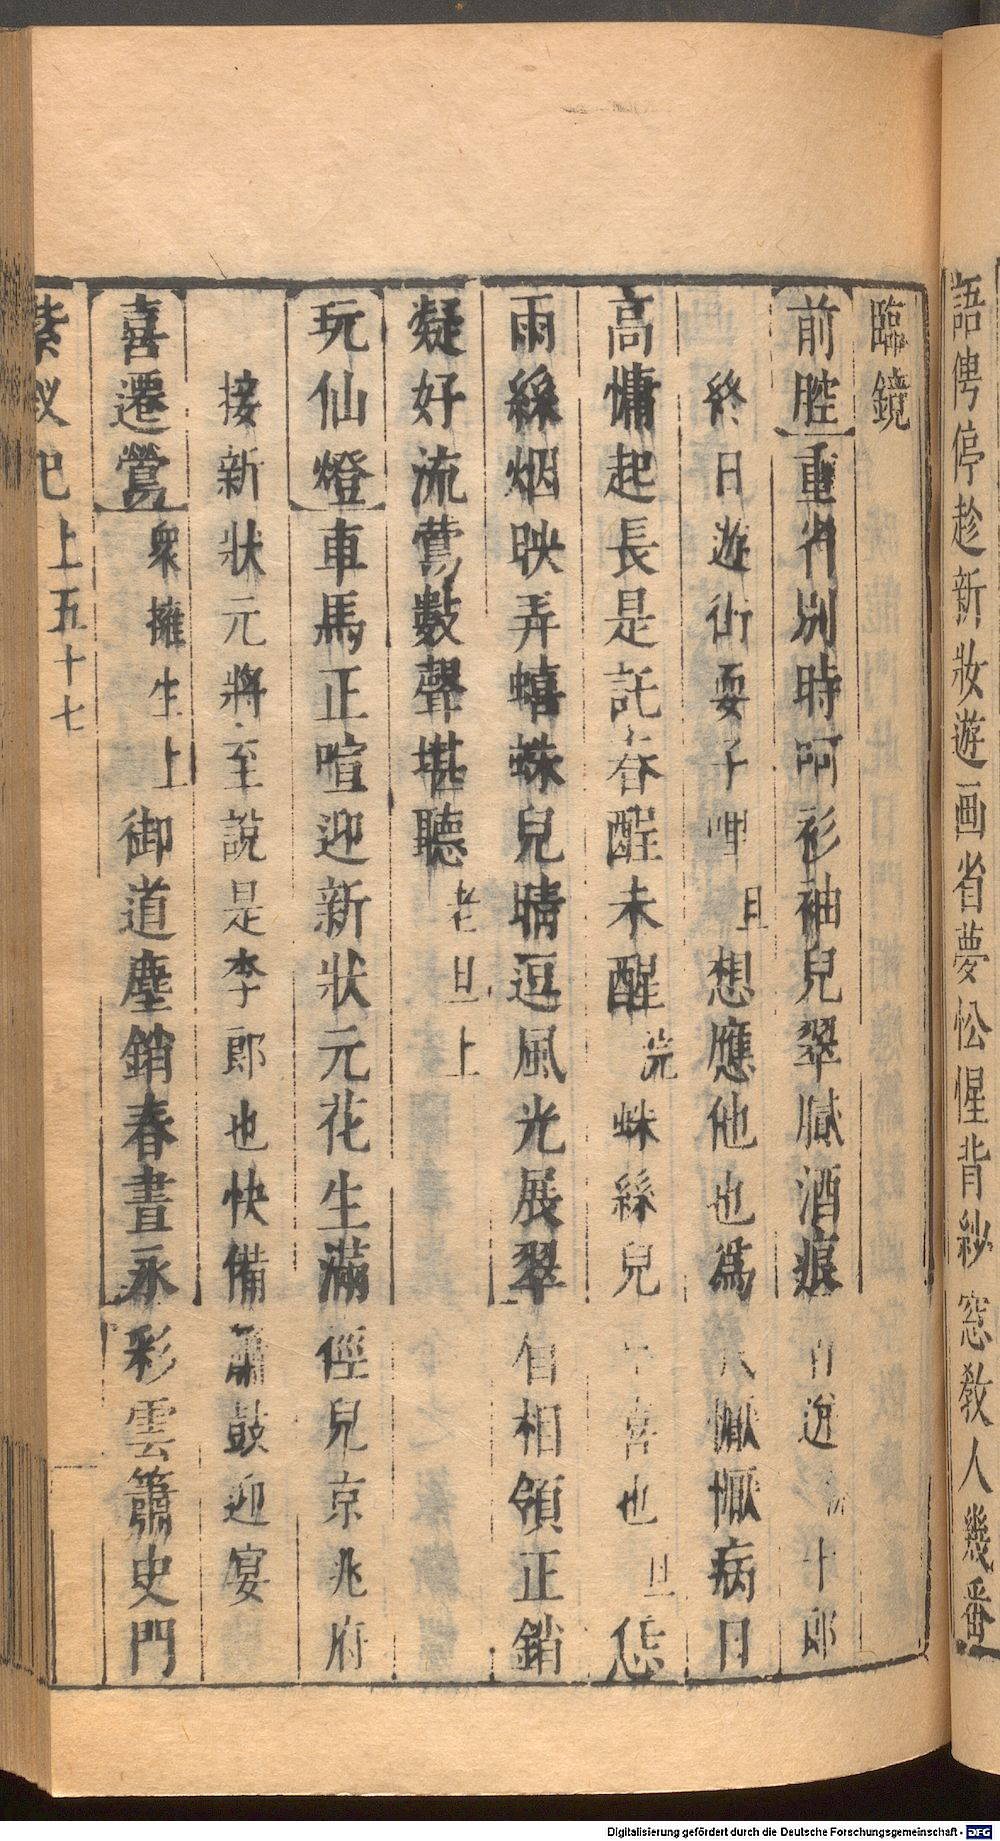 語俜停趁新妝遊画省夢忪惺背紗窓教人幾番
臨鏡
前腔重省別時呵衫袖兒翠膩酒痕 十郎
終日遊街耍子哩旦想應他也為 懨懨病日
高慵起長是託春酲未醒浣蛛絲兒 喜也旦恁
雨絲烟映弄蟢蛛兒晴逗風光展翠眉相領正銷
凝好流鶯數聲堪聽老旦上
玩仙燈車馬正喧迎新狀元花生滿徑兒京兆府
接新狀元將至說是李郎也快備簫鼓迎宴
喜遷鶯衆擁生上御道塵銷春晝永彩雲簫史門
紫釵記上五十七
Digitalisierung gefördert durch die Deutsche Forschungsgemeinschaft - DFG